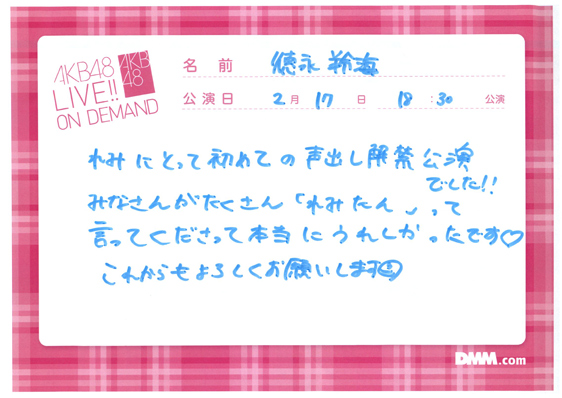 AKB48
LIVE!!
ON DEMAND
AKB
48
名前 徳永羚海
公演日 2月17日 18:30 公演
れみにとって初めての声出し解禁公演
でした!!
みなさんがたくさん「れみたん」って
言ってくださって本当にうれしかったです♡
これからもよろしくお願いします☺
DMM.com